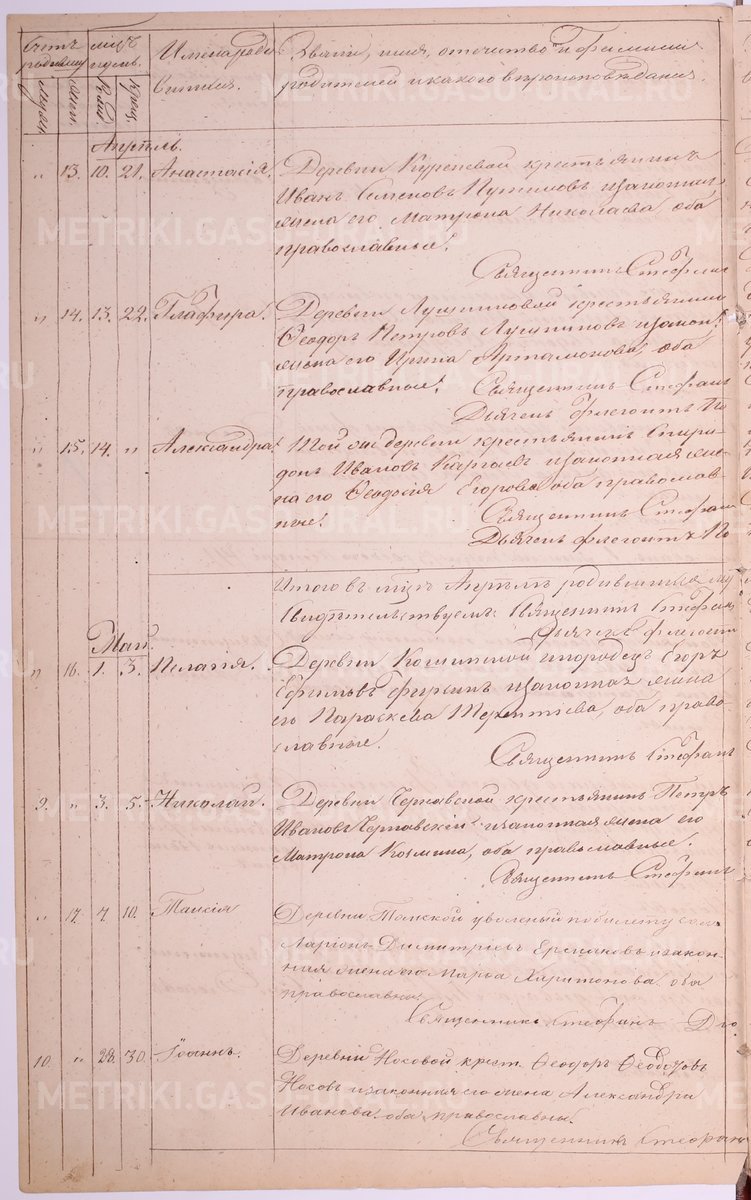 Счетъ родившихся
Мѣсяцъ и день.
Имена родившихся.
Званіе, имя, отчество и фамилія
родителей и какого вѣроисповѣданія.
Муж.
жен.
Рожд.
Крещ.
Апрѣль.
„ 13. 10. 21. Анастасія. Деревни крестьянинъ
Иванъ Семеновъ и законная
жена его Матрона Николаева, оба
православные.
Священникъ Стефанъ
„ 14. 13. 22. Глафира. Деревни Лушниковой крестьянинъ
Ѳеодоръ Петровъ Лушниковъ и закон.
жена его Ирина Артамонова, оба
православные. Священникъ Стефанъ
Дьячекъ Флегонтъ По
„ 15. 14. „ Александра. Той же деревни крестьянинъ Спири-
донъ Ивановъ и законная же-
на его Ѳеодосія Егорова оба православ-
ные. Священникъ Стефан
Дьячекъ Флегонтъ По
Итого въ мцѣ Апрѣлѣ родившихся му
Свидѣтельствуемъ: Священникъ Стефан
Дьячекъ Флегонт
Май.
„ 16. 1. 3. Пелагія. Деревни инородецъ Егоръ
Ефимовъ и законная жена
его Параскева Терентіева, оба право-
славные.
Священникъ Стефан
9. „ 3. 5. Николай. Деревни Чернавской крестьянинъ Петръ
Ивановъ Чернавскій и законная жена его
Матрона Козмина, оба православные.
Священникъ Стефан
„ 17. 4. 10. Таисія Деревни уволеный по билету сол.
Ларіонъ Димитріевъ Ермаковъ и закон-
ная жена его Марѳа Харитонова оба
православны.
Священникъ Стефанъ Дья
10. „ 28. 30. Іоаннъ. Деревни Носовой крест. Ѳеодоръ Ѳедотовъ
Носовъ и законная его жена Александра
Иванова оба православны.
Священникъ Стефанъ
METRIKI.GASUFURAL.RU